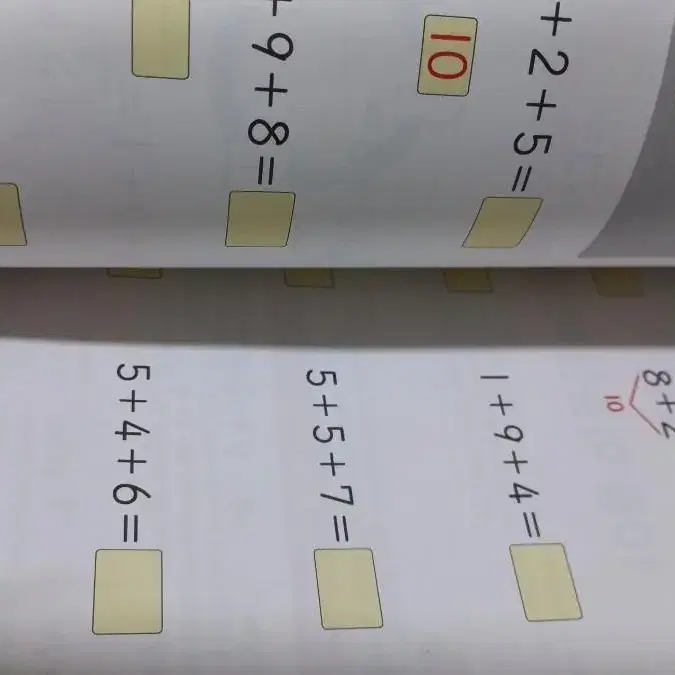 +2+5=
10
+9+8=
8+
10
1+9+4=
5+5+7=
5+4+6=